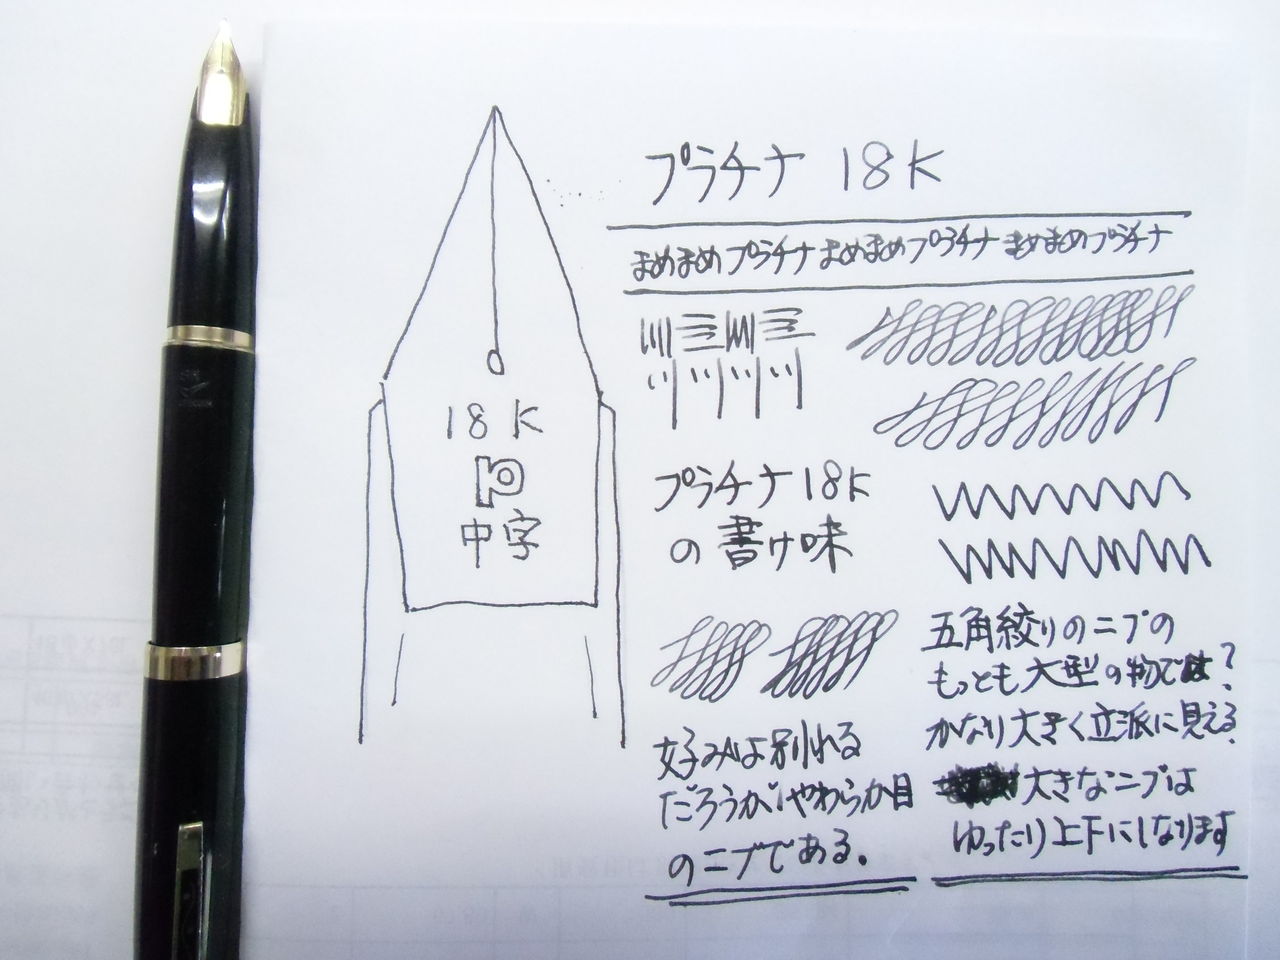 プラチナ 18K
まめまめプラチナまめまめプラチナまめまめプラチナ
18K
P
中字
プラチナ18K
の書け味
好みは別れる
だろうがやわらか目
のニブである。
五角絞りのニブの
もっとも大型の物では?
かなり大きく立派に見える。
大きなニブは
ゆったり上下にしなります